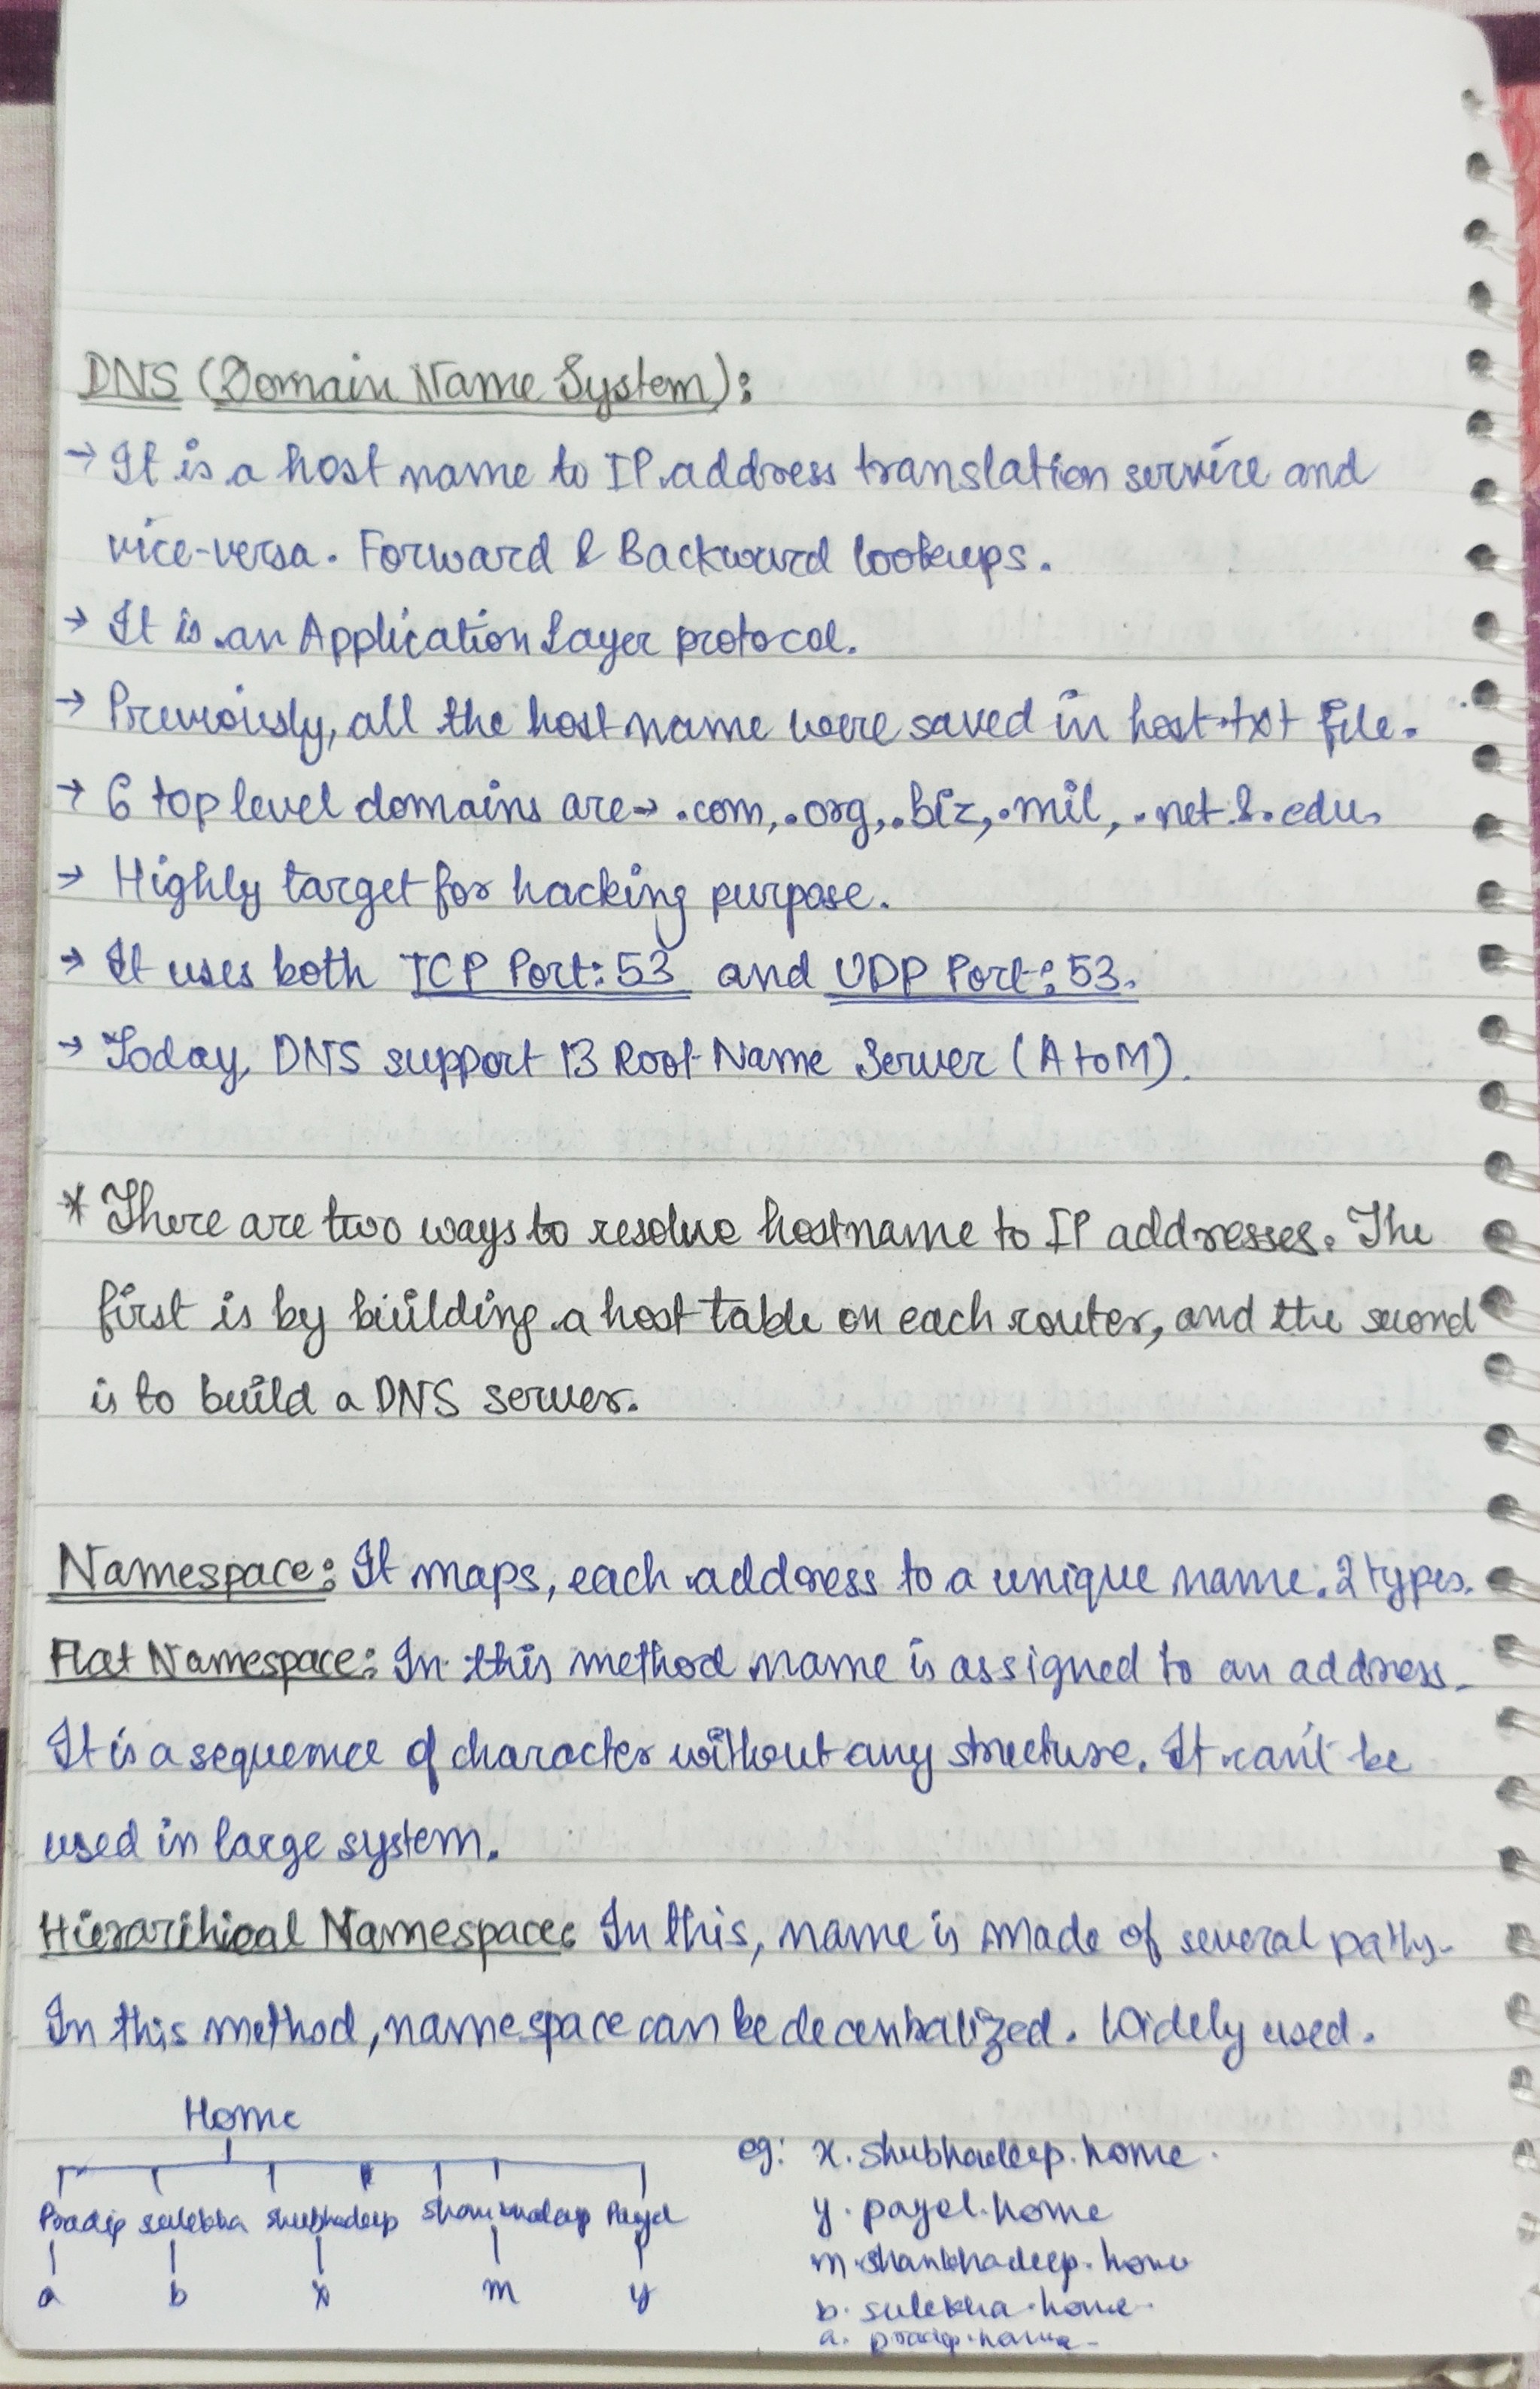 DNS (Domain Name System):
→ It is a host name to IP address translation service and
vice-versa. Forward & Backward lookups.
→ It is an Application Layer protocol.
→ Previously, all the host name were saved in host.txt file.
→ 6 top level domains are → .com, .org, .biz, .mil, .net & .edu.
→ Highly target for hacking purpose.
→ It uses both TCP Port: 53 and UDP Port: 53.
→ Today, DNS support 13 Root Name Server (A to M).
* There are two ways to resolve hostname to IP addresses. The
first is by building a host table on each router, and the second
is to build a DNS server.
Namespace: It maps, each address to a unique name. 2 types.
Flat Namespace: In this method name is assigned to an address.
It is a sequence of character without any structure. It can't be
used in large system.
Hierarchical Namespace: In this, name is made of several paths.
In this method, namespace can be decentralized. Widely used.
Home
Pradip sulekha shubhadeep Payel
a b x m y
eg: x.shubhadeep.home.
y.payel.home
m.shankhadeep.home
b.sulekha.home.
a. pradip.home